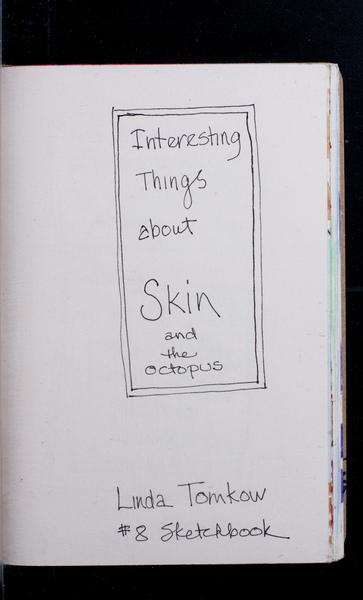 Interesting
Things
about
Skin
and
the
octopus
Linda Tomkow
#8 Sketchbook